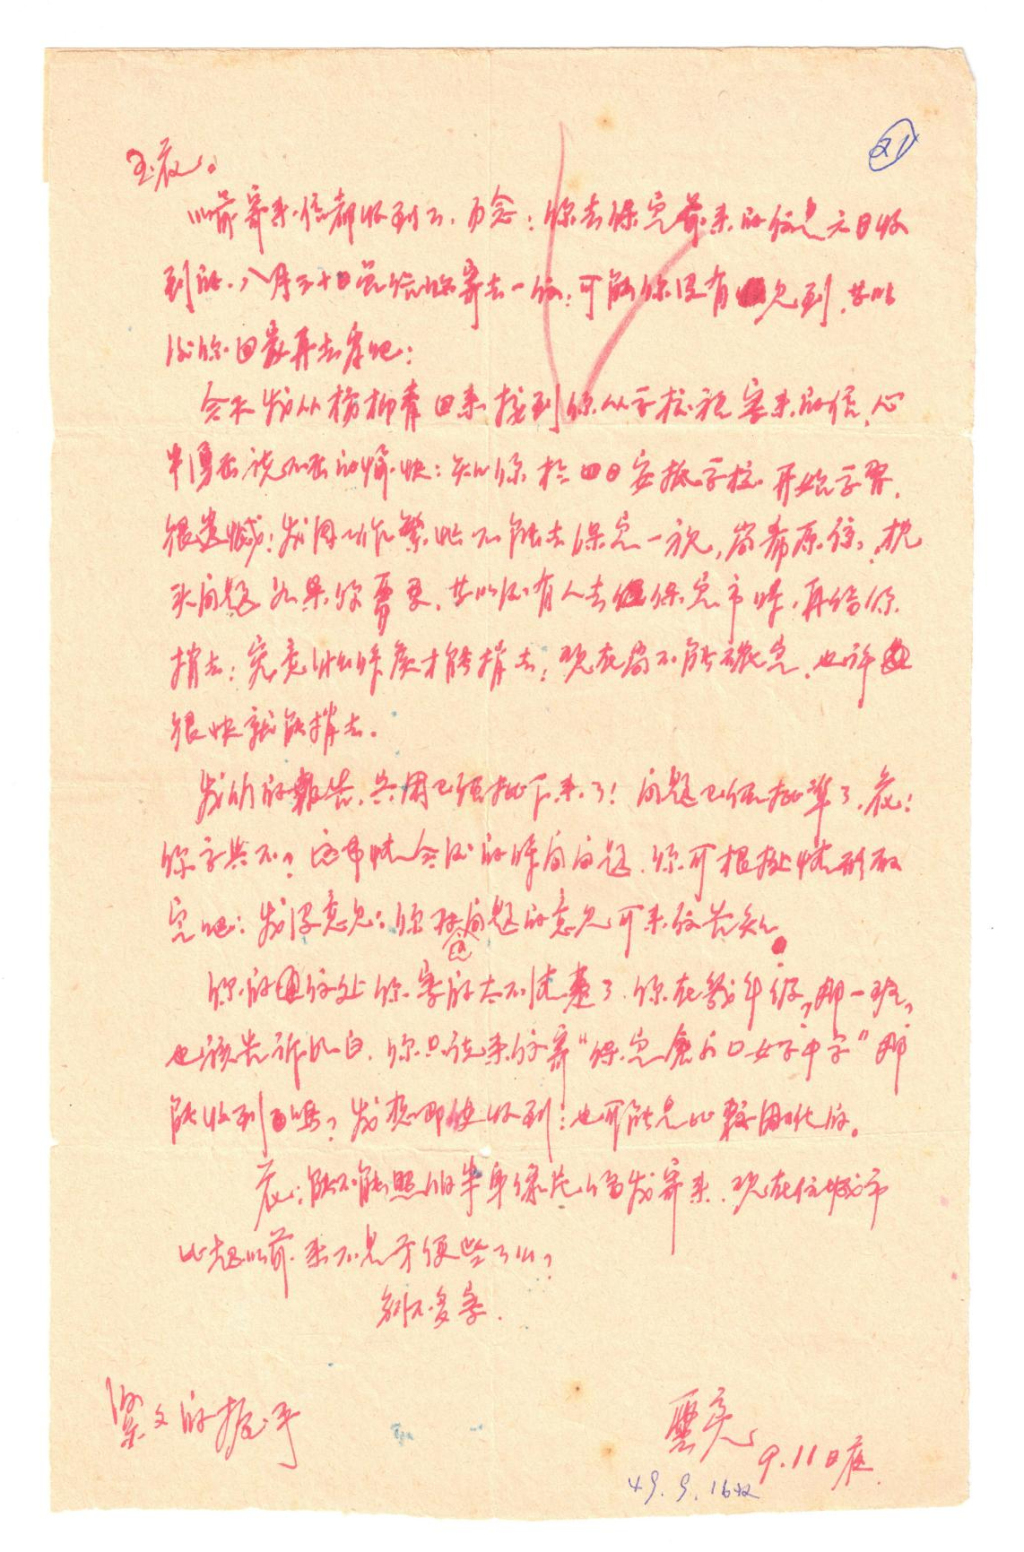 21
玉衣。
以前寄来信都收到了，勿念；你去保定前来的信是六日收
到的，八月三十日曾给你寄去一信；可能你没有见到，等以
后你回家再去看吧；
今天我从杨柳青回来接到你从学校里寄来的信，心
中涌出说不出的愉快；知你於四日安抵学校开始学习，
很遗憾；我因工作繁忙不能去保定一祝，尚希原谅，枕
头问题如果你需要，等以后有人去保定市时，再给你
捎去；究竟什么时候才能捎去；现在尚不能确定，也许
很快就能捎去。
我们的报告，共同已经批下来了！问题已经批准了，衣！
你高兴不？这希望今后的时间问题，你可根据情形而
定吧；我没意见；你对这问题的意见可来信告知。
你的通信处你写的太不清楚了，你在几年级，那一班，
也该告诉明白，你只说来信寄“保定 女子中学”那
能收到吗？我想即使收到；也可能是比较困难的。
衣；能不能照个半身像片给我寄来，现在住城市
比起以前来不是方便些了么？
别不多写。
梁文的振平
云亮
9.11日夜
49.9.16收